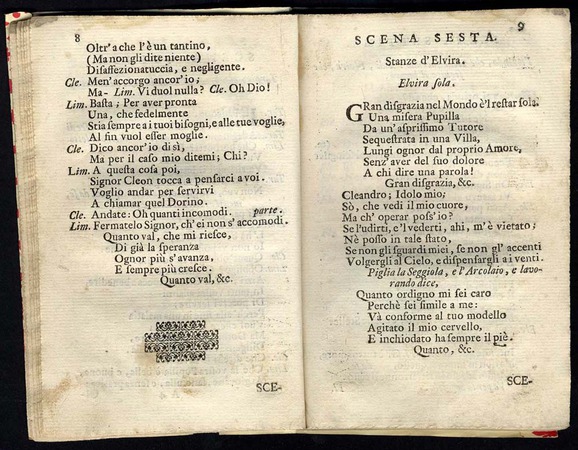 8
Oltr'a che l'è un tantino,
(Ma non gli dite niente)
Disaffezionatuccia, e negligente.
Cle. Men'accorgo ancor'io;
Ma- Lim. Vi duol nulla? Cle. Oh Dio!
Lim. Basta; Per aver pronta
Una, che fedelmente
Stia sempre ai tuoi bisogni, e alle tue voglie,
Al fin vuol esser moglie.
Cle. Dico ancor'io di sì,
Ma per il caso mio ditemi; Chi?
Lim. A questa cosa poi,
Signor Cleon tocca a pensarci a voi.
Voglio andar per servirvi
A chiamar quel Dorino.
Cle. Andate: Oh quanti incomodi. parte.
Lim. Fermatelo Signor, ch'ei non s'accomodi.
Quanto val, che mi riesce,
Di già la speranza
Ognor più s'avanza,
E sempre più cresce.
Quanto val, &c.
SCE-
9
SCENA SESTA.
Stanze d'Elvira.
Elvira sola.
GRan disgrazia nel Mondo è'l restar sola.
Una misera Pupilla
Da un'asprissimo Tutore
Sequestrata in una Villa,
Lungi ognor dal proprio Amore,
Senz'aver del suo dolore
A chi dire una parola!
Gran disgrazia, &c.
Cleandro; Idolo mio;
Sò, che vedi il mio cuore,
Ma ch'operar poss'io?
Se l'udirti, e'l vederti, ahi, m'è vietato;
Nè posso in tale stato,
Se non gli sguardi miei, se non gl'accenti
Volgergli al Cielo, e dispensargli a i venti.
Piglia la Seggiola, e l'Arcolaio, e lavo-
rando dice,
Quanto ordigno mi sei caro
Perchè sei simile a me:
Và conforme al tuo modello
Agitato il mio cervello,
E inchiodato ha sempre il piè.
Quanto, &c.
SCE-